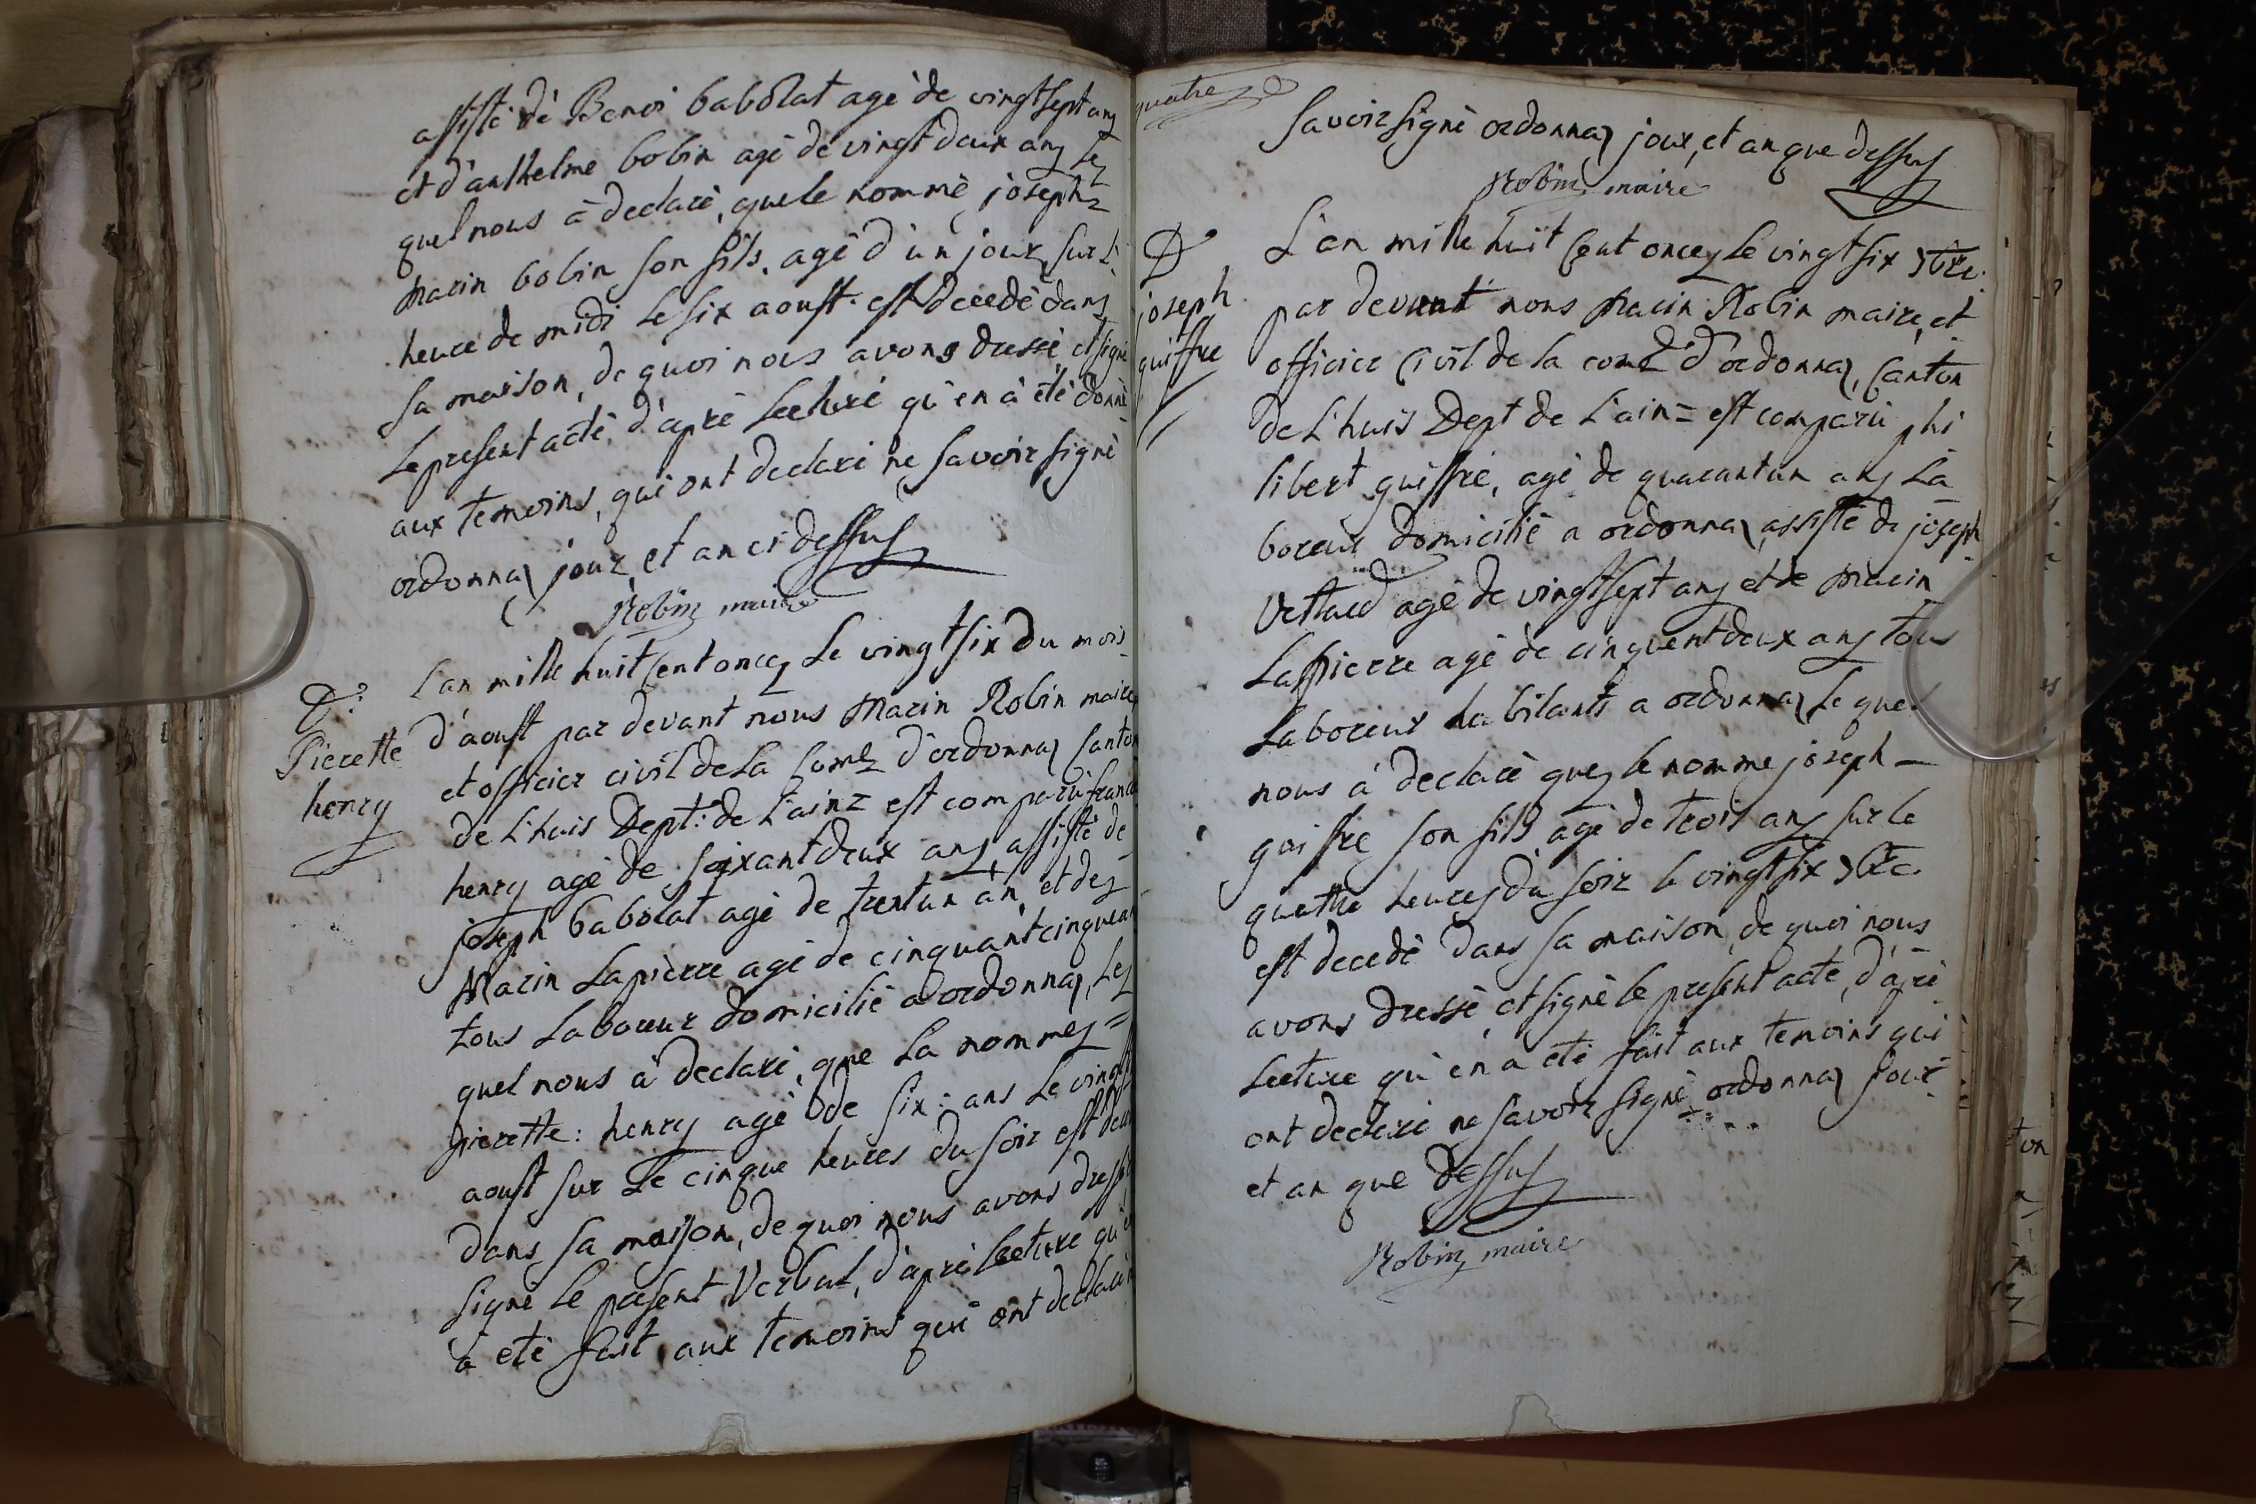 assisté dè Benoi babolat agè de vingtsept ans
et d'anthelme bobin agè de vingt deux ans le
quel nous à declarè, que le nommè, joseph
marin bobin son fils, agè d'un jour, sur l'
heure de midi le six aoust est decedè dans
sa maison, de quoi nous avons dressè, et signè
le present acte, d'aprè lecture qu'en à étè donnè
aux temoins, qui ont declarè ne savoir signè
ordonnaz jour, et an ci dessus
Robin maire
L'an mille huit cent onze, le vingt six du mois
D:
Pierette
henry
d'aoust par devant nous Marin Robin maire
et officier civil de la come d'ordonnaz canton
de L'huis Dept: de L'ain = est comparù
henry agè de soixant deux ans, assistè de
joseph babolat agè de trentun an, et de
Marin Lapierre agè de cinquant cinque
tous laboreur domiciliè a ordonnaz, le
quel nous à declarè, que la nommes =
pierette: henry agè de six: ans le vingt
aoust sur le cinque heures du soir est
dans sa maison, de quoi nous avons dressè
signè le present Verbal, d'aprè lecture qu'
à etè fait, aux temoins qui ont declarè
quatre
savoir signè ordonnaz jour, et an que dessus
Robin maire
D
joseph
guiffre
L'an mille huit cent onze, le vingt six
par devant nous Marin Robin maire, et
officier civil de la come d'ordonnaz, canton
de L'huis Dept de L'ain = est comparù phi
libert guiffre, agè de quarantun ans la
boreur domiciliè a ordonnaz, assistè de joseph
Vettard agè de vingtsept ans et de Marin
Lapierre agè de cinquent deux ans tous
laboreur habitants a ordonnaz le quel
nous à declarè que, le nomme joseph
guiffre son fils agè de trois ans sur le
quatre heures du soir le vingt six
est decedè dans sa maison, de quoi nous
avons dressè, et signè le present acte, d'aprè
lecture qu'en a etè fait aux temoins qui
ont declarè ne savoir signè, ordonnaz jour
et an que dessus
Robin maire